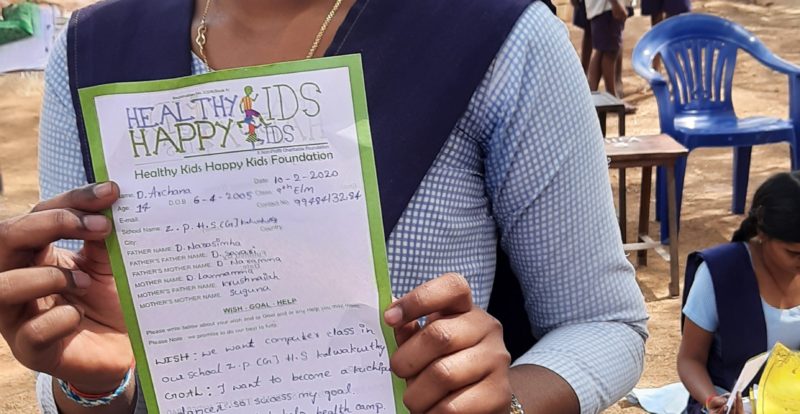 HEALTHY KIDS
HAPPY KIDS
A Non-Profit Charitable Foundation
Healthy Kids Happy Kids Foundation
Name: D. Archana Date: 10-2-2020
Age: 14 D.O.B 6-4-2005 Class 9th E/m
E-mail: Contact No. 9948413284
School Name: Z.P.H.S (G) kalwakurthy
City: Country:
FATHER NAME: D. Narasimha
FATHER'S FATHER NAME: D.
FATHER'S MOTHER NAME: D.
MOTHER NAME: D. Laxmamma
MOTHER'S FATHER NAME: krushnaiah
MOTHER'S MOTHER NAME: Suguna
WISH - GOAL - HELP
Please write below about your wish and or Goal and or any Help you may
Please Note: we promise to do our best to help.
WISH: we want computer class in
our school z.p (G) H.S kalwakurthy
Goal: I want to become a kuchipudi
dancer. success my goal.
help health camp.